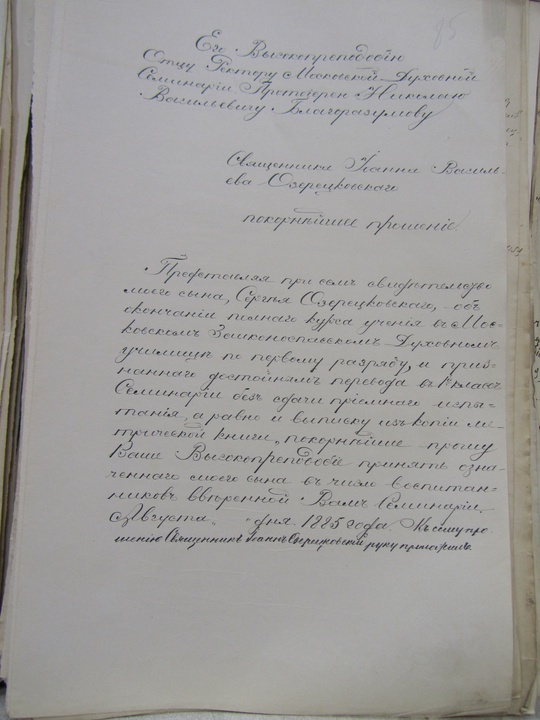 85
Его Высокопреподобію
Отцу Ректору Московской Духовной
Семинаріи Протоіерею Николаю
Васильевичу Благоразумову
Священника Іоанна Василь-
ева Озерецковскаго
покорнѣйшее прошеніе.
Представляя при семъ свидѣтельство
моего сына, Сергѣя Озерецковскаго, объ
окончаніи полнаго курса ученія въ Мос-
ковскомъ Заиконоспасскомъ Духовномъ
училищѣ по первому разряду, и приз-
наннаго достойнымъ перевода въ 1й классъ
Семинаріи безъ сдачи пріемнаго испы-
танія, а равно и выписку изъ копіи ме-
трической книги, покорнѣйше прошу
Ваше Высокопреподобіе принять озна-
ченнаго моего сына въ число воспитан-
никовъ ввѣренной Вамъ Семинаріи.
Августа „ " дня 1885 года Къ сему про-
шенію Священникъ Іоаннъ Озерецковскій руку приложилъ.